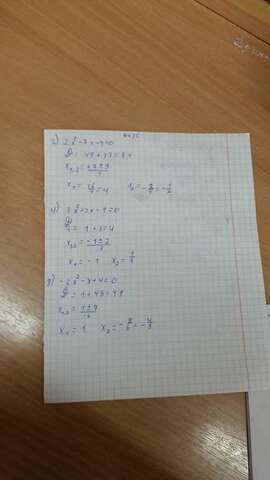 2) 2x²-7x-4=0
D = 49+32=81
x₁,₂=7±9/4
x₁=16/4=4 x₂=-2/4=-1/2
4) 3x²+2x-1=0
D/4 = 1+3=4
x₁,₂=-1±2/3
x₁=-1 x₂=1/3
-3x²-x+4=0
D = 1+48=49
x₁,₂=1±7/-6
x₁=1 x₂=-8/6=-4/3